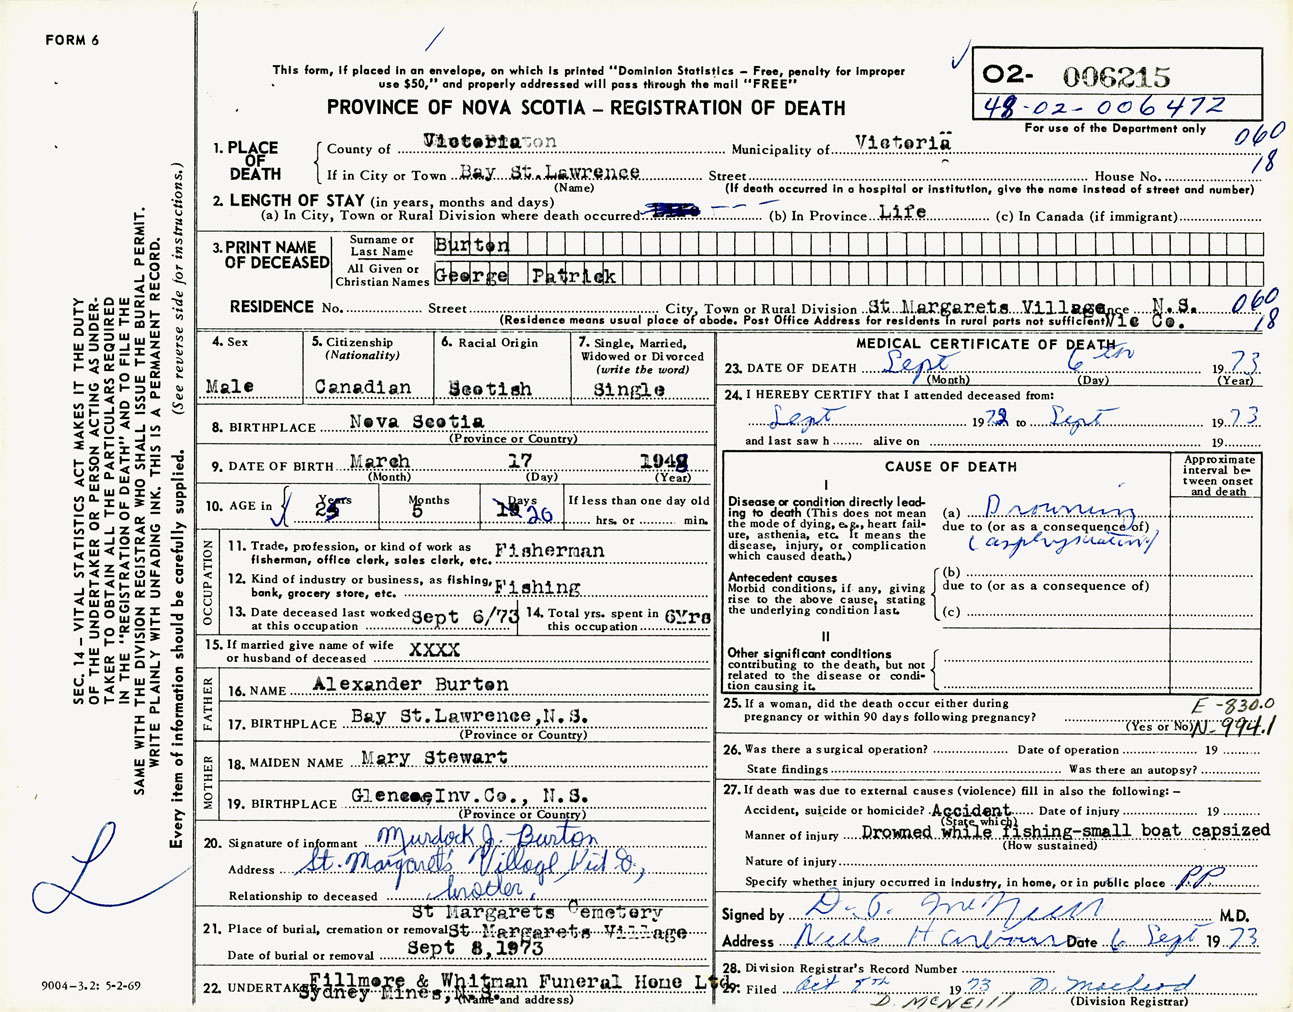 FORM 6
/
This form, if placed in an envelope, on which is printed "Dominion Statistics – Free, penalty for improper
use $50," and properly addressed will pass through the mail "FREE"
PROVINCE OF NOVA SCOTIA – REGISTRATION OF DEATH
02- 006215
48-02-006472
For use of the Department only
060
18
1. PLACE OF DEATH
County of Victoria Municipality of Victoria
If in City or Town Bay St.Lawrence Street House No.
(Name) (If death occurred in a hospital or institution, give the name instead of street and number)
2. LENGTH OF STAY (in years, months and days)
(a) In City, Town or Rural Division where death occurred (b) In Province Life (c) In Canada (if immigrant)
3. PRINT NAME OF DECEASED
Surname or Last Name Burton
All Given or Christian Names George Patrick
RESIDENCE No. Street City, Town or Rural Division St Margarets Village N.S. 060
(Residence means usual place of abode. Post Office Address for residents in rural parts not sufficient) Vic Co. 18
4. Sex Male
5. Citizenship (Nationality) Canadian
6. Racial Origin Scotish
7. Single, Married, Widowed or Divorced (write the word) Single
8. BIRTHPLACE Nova Scotia
(Province or Country)
9. DATE OF BIRTH March 17 1948
(Month) (Day) (Year)
10. AGE in Years 25 Months 5 Days 20 If less than one day old
hrs. or min.
OCCUPATION
11. Trade, profession, or kind of work as fisherman, office clerk, sales clerk, etc. Fisherman
12. Kind of industry or business, as fishing, bank, grocery store, etc. Fishing
13. Date deceased last worked at this occupation Sept 6/73 14. Total yrs. spent in this occupation 6Yrs
15. If married give name of wife or husband of deceased XXXX
FATHER
16. NAME Alexander Burton
17. BIRTHPLACE Bay St.Lawrence,N.S.
(Province or Country)
MOTHER
18. MAIDEN NAME Mary Stewart
19. BIRTHPLACE Glencoe Inv.Co., N.S.
(Province or Country)
20. Signature of informant Murdock J. Burton
Address St. Margaret's Village, Vict Co,
Relationship to deceased brother,
St Margarets Cemetery
21. Place of burial, cremation or removal St. Margarets Village
Date of burial or removal Sept 8,1973
22. UNDERTAKER Fillmore & Whitman Funeral Home Ltd.
Sydney Mines, N.S.
(Name and address)
MEDICAL CERTIFICATE OF DEATH
23. DATE OF DEATH Sept 6th 1973
(Month) (Day) (Year)
24. I HEREBY CERTIFY that I attended deceased from:
Sept 1972 to Sept 1973
and last saw h alive on 19
CAUSE OF DEATH
Approximate interval between onset and death
I
Disease or condition directly leading to death (This does not mean the mode of dying, e.g., heart failure, asthenia, etc. It means the disease, injury, or complication which caused death.)
(a) Drowning
due to (or as a consequence of)
(asphyxiation)
Antecedent causes
Morbid conditions, if any, giving rise to the above cause, stating the underlying condition last.
(b)
due to (or as a consequence of)
(c)
II
Other significant conditions
contributing to the death, but not related to the disease or condition causing it.
25. If a woman, did the death occur either during pregnancy or within 90 days following pregnancy?
(Yes or No)
E-830.0
N-994.1
26. Was there a surgical operation? Date of operation 19
State findings Was there an autopsy?
27. If death was due to external causes (violence) fill in also the following: –
Accident, suicide or homicide? Accident Date of injury 19
(State which)
Manner of injury Drowned while fishing-small boat capsized
(How sustained)
Nature of injury
Specify whether injury occurred in industry, in home, or in public place P.P.
Signed by M.D.
Address Neils Harbour Date 6 Sept 1973
28. Division Registrar's Record Number
29. Filed Oct 8th 1973
D. MCNEILL (Division Registrar)
SEC. 14 – VITAL STATISTICS ACT MAKES IT THE DUTY
OF THE UNDERTAKER OR PERSON ACTING AS UNDER-
TAKER TO OBTAIN ALL THE PARTICULARS REQUIRED
IN THE "REGISTRATION OF DEATH" AND TO FILE THE
SAME WITH THE DIVISION REGISTRAR WHO SHALL ISSUE THE BURIAL PERMIT.
WRITE PLAINLY WITH UNFADING INK. THIS IS A PERMANENT RECORD.
Every item of information should be carefully supplied. (See reverse side for instructions.)
9004-3.2: 5-2-69